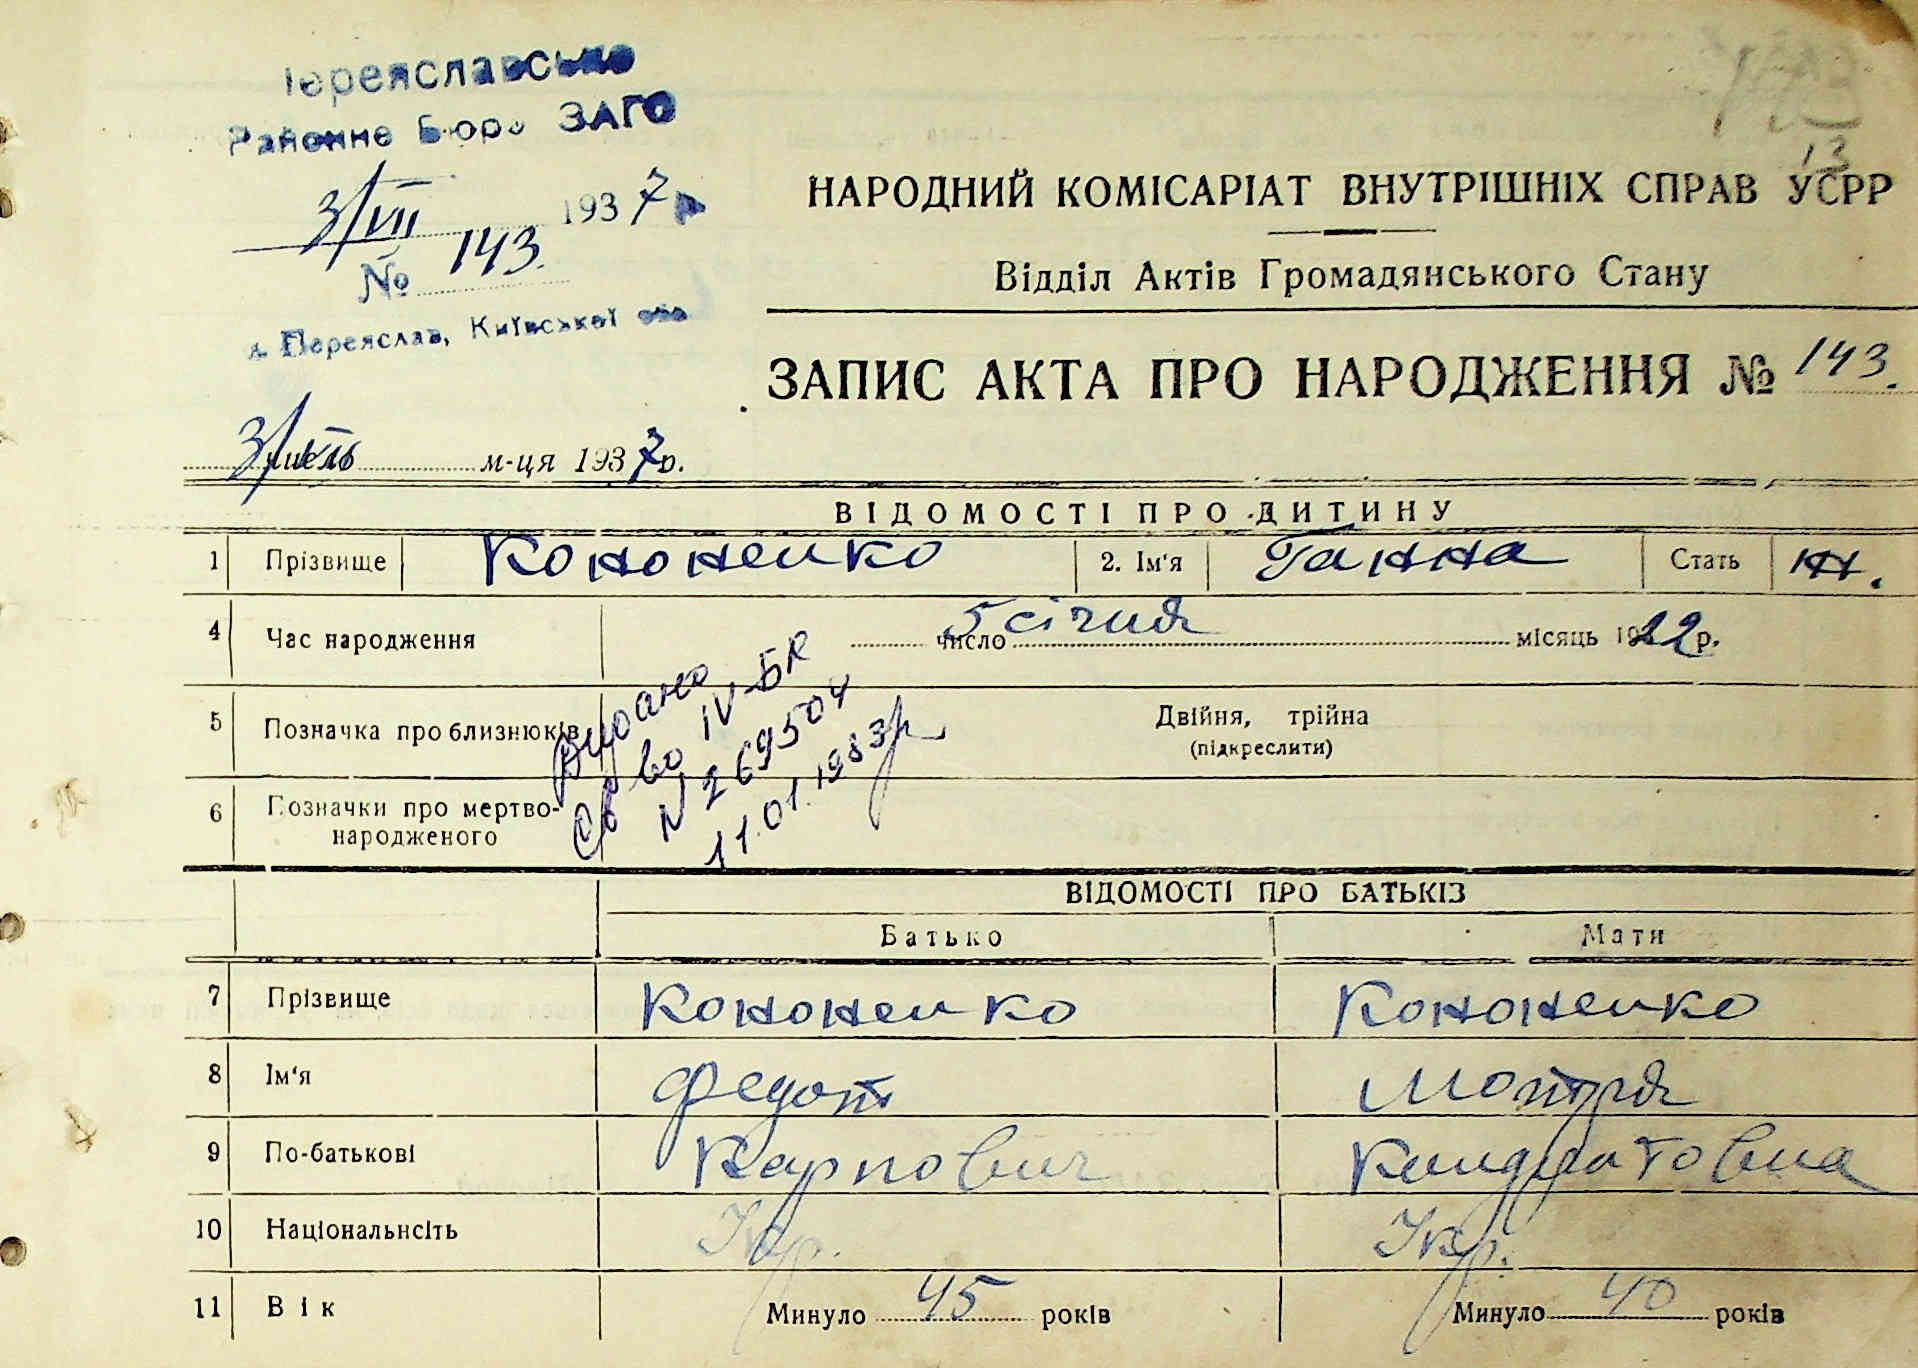 Переяславське
Районне Бюро ЗАГС
3/VII 1937 р
№ 143.
м. Переяслав, Київської обл
13
НАРОДНИЙ КОМІСАРІАТ ВНУТРІШНІХ СПРАВ УСРР
Відділ Актів Громадянського Стану
ЗАПИС АКТА ПРО НАРОДЖЕННЯ № 143.
3/ м-ця 1937 р.
ВІДОМОСТІ ПРО ДИТИНУ
1 Прізвище Кононенко 2. Ім'я Ганна Стать ж.
4 Час народження 5 січня число місяць 1922 р.
5 Позначка про близнюків Двійня, трійна
(підкреслити)
6 Позначки про мертво-
народженого
Видано
Св-во IV-БК
N 269504
11.01.1983р
ВІДОМОСТІ ПРО БАТЬКІВ
Батько Мати
7 Прізвище Кононенко Кононенко
8 Ім'я Федот Мотря
9 По-батькові Карпович Кіндратовна
10 Національнсіть Укр. Укр.
11 Вік Минуло 45 років Минуло 40 років